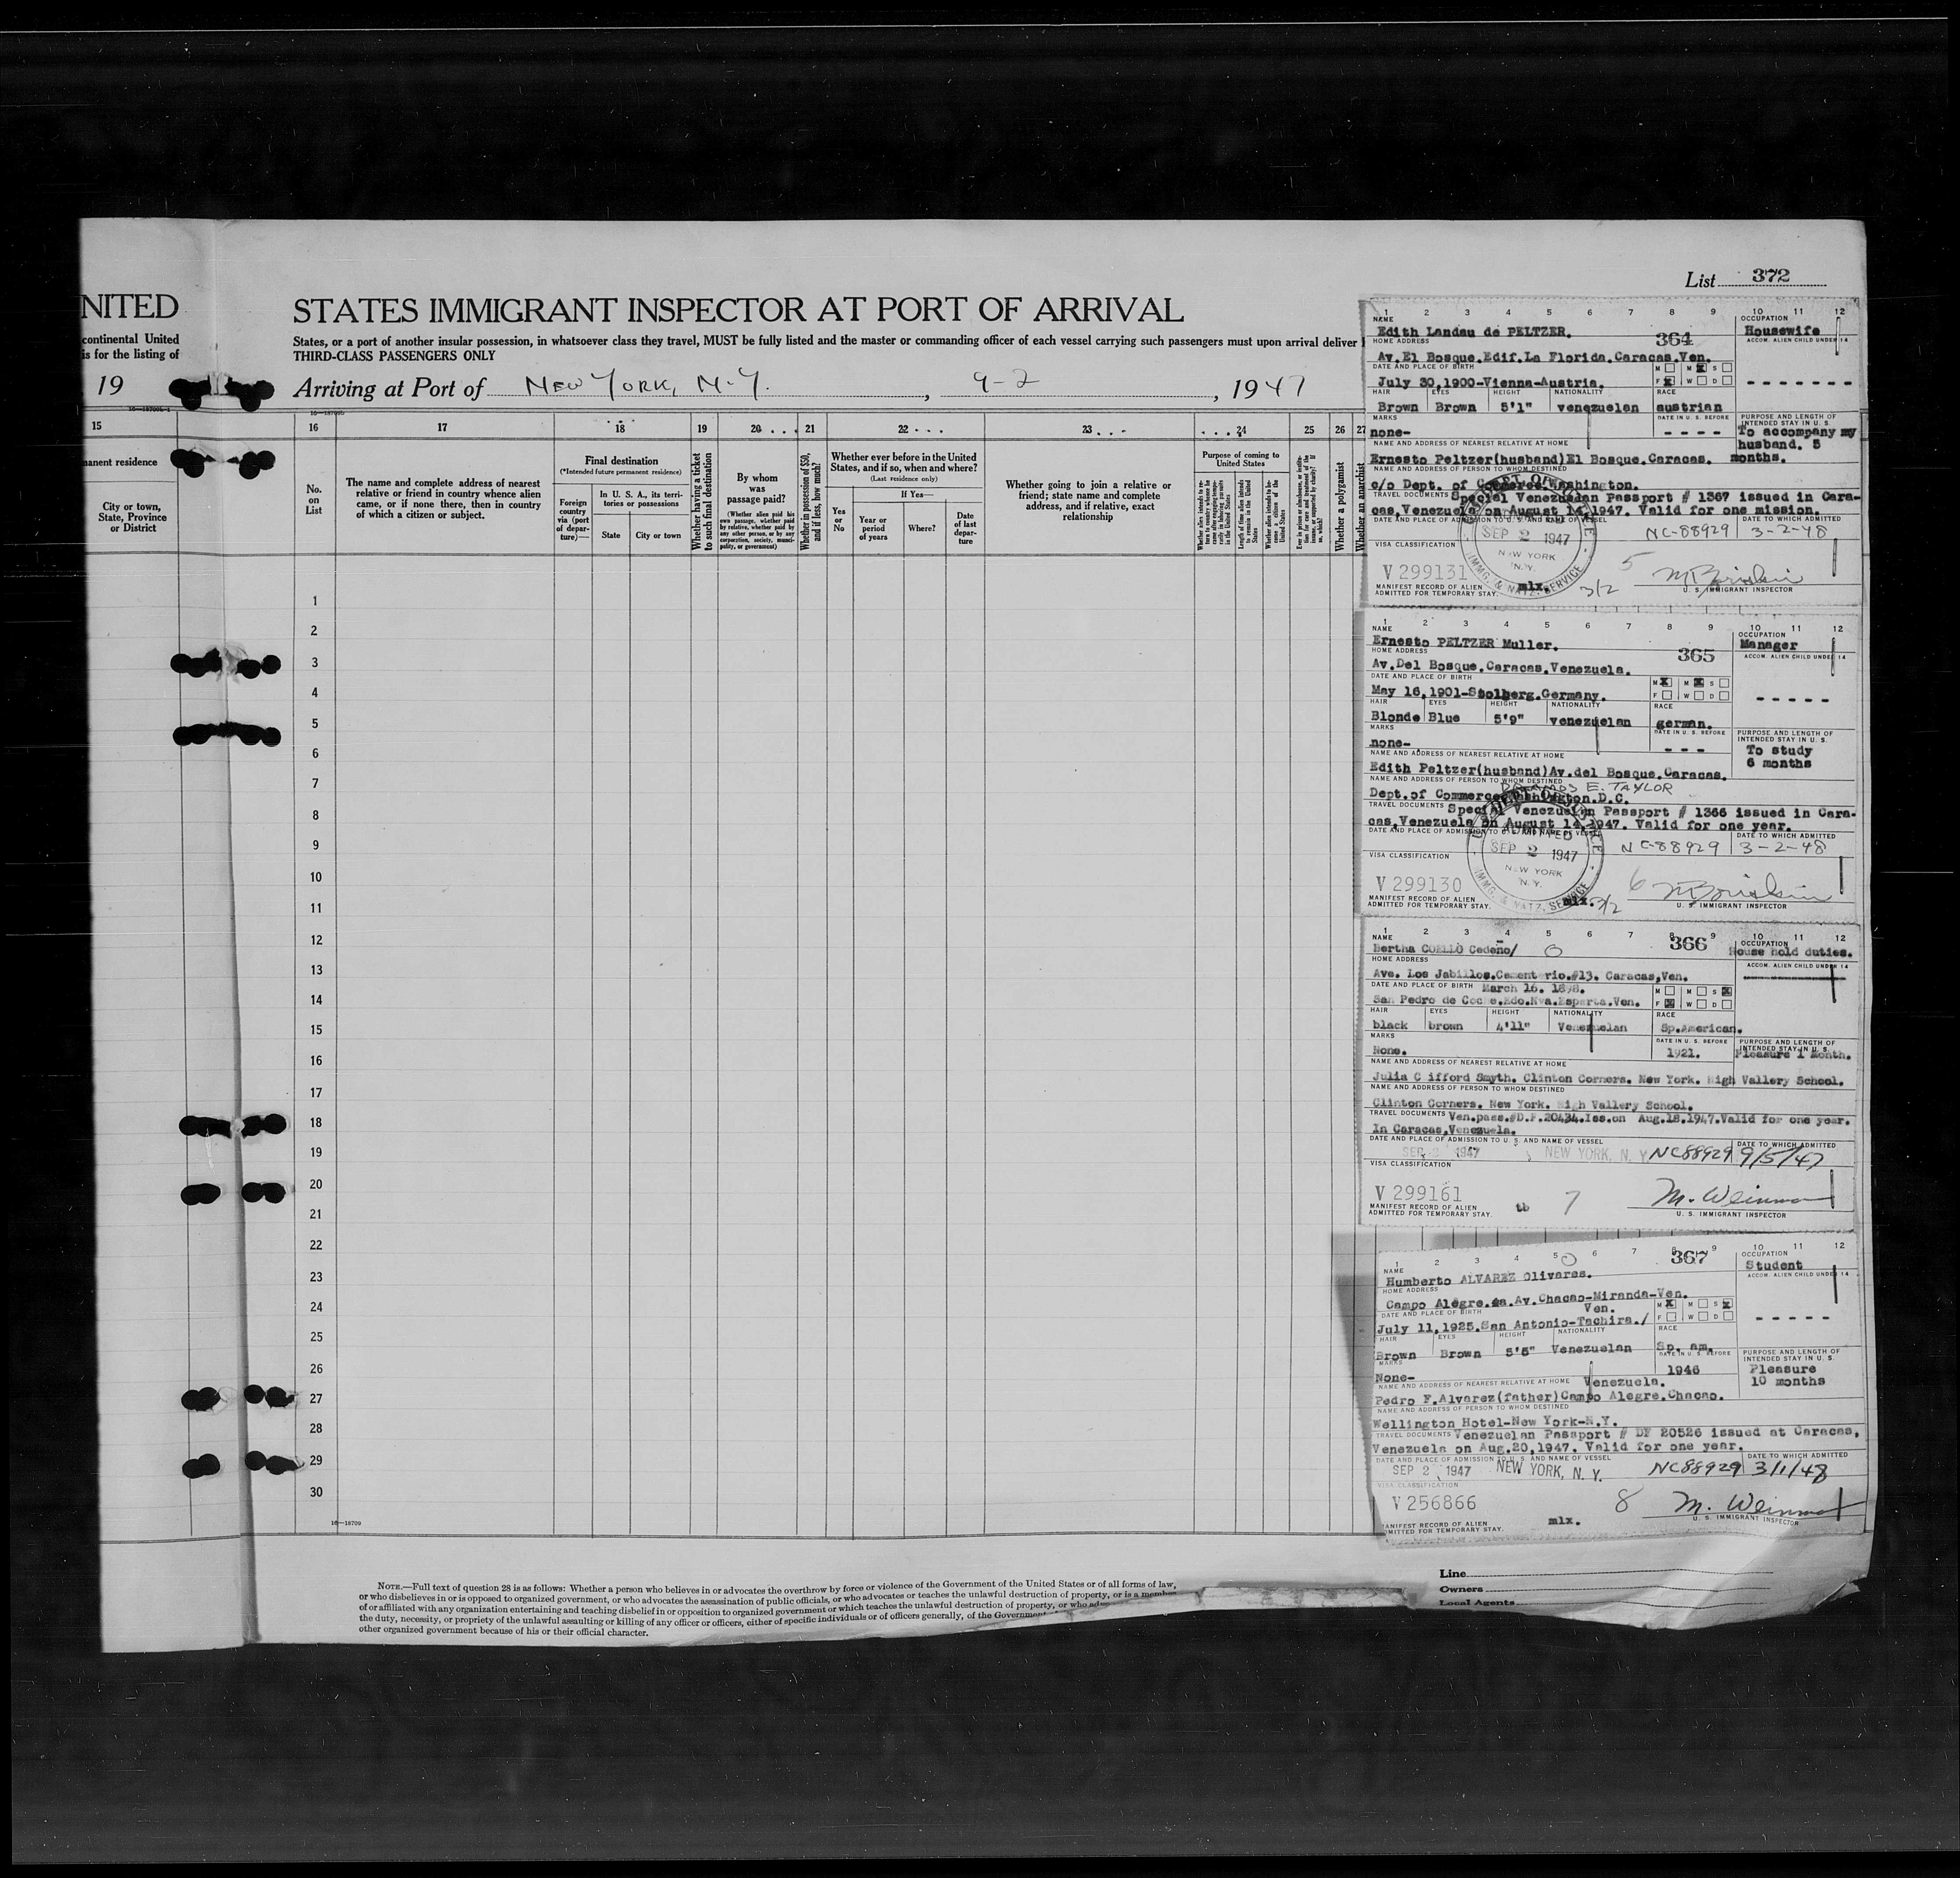 List 372
NITED STATES IMMIGRANT INSPECTOR AT PORT OF ARRIVAL
continental United States, or a port of another insular possession, in whatsoever class they travel, MUST be fully listed and the master or commanding officer of each vessel carrying such passengers must upon arrival deliver
is for the listing of THIRD-CLASS PASSENGERS ONLY
19 Arriving at Port of NEW YORK, N.Y. , 9-2 , 1947
15 16 17 18 19 20 21 22 23 24 25 26 27
anent residence
City or town, State, Province or District
No. on List
The name and complete address of nearest relative or friend in country whence alien came, or if none there, then in country of which a citizen or subject.
Final destination
(*Intended future permanent residence)
Foreign country via (port of departure)—
In U. S. A., its territories or possessions
State
City or town
Whether having a ticket to such final destination
By whom was passage paid?
(Whether alien paid his own passage, whether paid by relative, whether paid by any other person, or by any corporation, society, municipality, or government)
Whether in possession of $50, and if less, how much?
Whether ever before in the United States, and if so, when and where?
(Last residence only)
Yes or No
If Yes—
Year or period of years
Where?
Date of last departure
Whether going to join a relative or friend; state name and complete address, and if relative, exact relationship
Purpose of coming to United States
Length of time alien intends to remain in the United States
Whether a polygamist
Whether an anarchist
1
2
3
4
5
6
7
8
9
10
11
12
13
14
15
16
17
18
19
20
21
22
23
24
25
26
27
28
29
30
16—18709
NOTE.—Full text of question 28 is as follows: Whether a person who believes in or advocates the overthrow by force or violence of the Government of the United States or of all forms of law,
or who disbelieves in or is opposed to organized government, or who advocates the assassination of public officials, or who advocates or teaches the unlawful destruction of property, or is a member
of or affiliated with any organization entertaining and teaching disbelief in or opposition to organized government or which teaches the unlawful destruction of property, or who
the duty, necessity, or propriety of the unlawful assaulting or killing of any officer or officers, either of specific individuals or of officers generally, of the Government
other organized government because of his or their official character.
Line
Owners
Local Agents
1 2 3 4 5 6 7 8 9 10 11 12
NAME OCCUPATION
Edith Landau de PELTZER. 364 Housewife
HOME ADDRESS ACCOM. ALIEN CHILD UNDER 14
Av.El Bosque.Edif.La Florida.Caracas.Ven.
DATE AND PLACE OF BIRTH M M X S
July 30,1900-Vienna-Austria. F X W D - - - - - - -
HAIR EYES HEIGHT NATIONALITY RACE
Brown Brown 5'1" venezuelan austrian
MARKS DATE IN U. S. BEFORE PURPOSE AND LENGTH OF INTENDED STAY IN U. S.
none- - - - - To accompany my husband. 5 months.
NAME AND ADDRESS OF NEAREST RELATIVE AT HOME
Ernesto Peltzer(husband)El Bosque.Caracas.
NAME AND ADDRESS OF PERSON TO WHOM DESTINED
c/o Dept. of Commerce.Washington.
TRAVEL DOCUMENTS Special Venezuelan Passport # 1367 issued in Cara-
cas,Venezuela on August 14,1947. Valid for one mission.
DATE AND PLACE OF ADMISSION TO U. S. AND NAME OF VESSEL DATE TO WHICH ADMITTED
SEP 2 1947 NEW YORK N.Y. IMMG. & NATZ. SERVICE NC-88929 3-2-48
VISA CLASSIFICATION
V 299131 5
MANIFEST RECORD OF ALIEN ADMITTED FOR TEMPORARY STAY. mlx. 3/2 U. S. IMMIGRANT INSPECTOR
1 2 3 4 5 6 7 8 9 10 11 12
NAME OCCUPATION
Ernesto PELTZER Muller. 365 Manager
HOME ADDRESS ACCOM. ALIEN CHILD UNDER 14
Av.Del Bosque.Caracas.Venezuela.
DATE AND PLACE OF BIRTH M X M X S
May 16,1901-Stolberg.Germany. F W D - - - - -
HAIR EYES HEIGHT NATIONALITY RACE
Blonde Blue 5'9" venezuelan german.
MARKS DATE IN U. S. BEFORE PURPOSE AND LENGTH OF INTENDED STAY IN U. S.
none- - - - To study 6 months
NAME AND ADDRESS OF NEAREST RELATIVE AT HOME
Edith Peltzer(husband)Av.del Bosque.Caracas.
NAME AND ADDRESS OF PERSON TO WHOM DESTINED
E. TAYLOR
Dept.of Commerce.Washington.D.C.
TRAVEL DOCUMENTS Special Venezuelan Passport # 1366 issued in Cara-
cas,Venezuela on August 14,1947. Valid for one year.
DATE AND PLACE OF ADMISSION TO U. S. AND NAME OF VESSEL DATE TO WHICH ADMITTED
SEP 2 1947 NEW YORK N.Y. IMMG. & NATZ. SERVICE NC-88929 3-2-48
VISA CLASSIFICATION
V 299130 6
MANIFEST RECORD OF ALIEN ADMITTED FOR TEMPORARY STAY. mlx. 3/2 U. S. IMMIGRANT INSPECTOR
1 2 3 4 5 6 7 8 9 10 11 12
NAME OCCUPATION
Bertha COELLO Cedeño/ 366 House hold duties.
HOME ADDRESS ACCOM. ALIEN CHILD UNDER 14
Ave. Los Jabillos.Cementerio.#13. Caracas,Ven.
DATE AND PLACE OF BIRTH March 16. 1898. M M S X
San Pedro de Coche.Edo.Nva.Esparta.Ven. F X W D
HAIR EYES HEIGHT NATIONALITY RACE
black brown 4'11" Venezuelan Sp.American.
MARKS DATE IN U. S. BEFORE PURPOSE AND LENGTH OF INTENDED STAY IN U. S.
None. 1921. Pleasure 1 Month.
NAME AND ADDRESS OF NEAREST RELATIVE AT HOME
Julia C ifford Smyth. Clinton Corners. New York. High Vallery School.
NAME AND ADDRESS OF PERSON TO WHOM DESTINED
Clinton Corners. New York. High Vallery School.
TRAVEL DOCUMENTS Ven.pass.#D.F.20434.Iss.on Aug.18.1947.Valid for one year.
In Caracas,Venezuela.
DATE AND PLACE OF ADMISSION TO U. S. AND NAME OF VESSEL DATE TO WHICH ADMITTED
SEP 2 1947 NEW YORK, N. Y. NC88929 9/5/47
VISA CLASSIFICATION
V 299161 7 M. Weinman
MANIFEST RECORD OF ALIEN ADMITTED FOR TEMPORARY STAY. tb U. S. IMMIGRANT INSPECTOR
1 2 3 4 5 6 7 8 9 10 11 12
NAME OCCUPATION
Humberto ALVAREZ Olivares. 367 Student
HOME ADDRESS ACCOM. ALIEN CHILD UNDER 14
Campo Alegre.4a.Av.Chacao-Miranda-Ven.
DATE AND PLACE OF BIRTH Ven. M X M S X
July 11,1925.San Antonio-Tachira./ F W D - - - - -
HAIR EYES HEIGHT NATIONALITY RACE
Brown Brown 5'5" Venezuelan Sp. am.
MARKS DATE IN U. S. BEFORE PURPOSE AND LENGTH OF INTENDED STAY IN U. S.
None- 1946 Pleasure 10 months
NAME AND ADDRESS OF NEAREST RELATIVE AT HOME Venezuela.
Pedro F.Alvarez(father)Campo Alegre.Chacao.
NAME AND ADDRESS OF PERSON TO WHOM DESTINED
Wellington Hotel-New York-N.Y.
TRAVEL DOCUMENTS Venezuelan Passport # DF 20526 issued at Caracas,
Venezuela on Aug.20,1947. Valid for one year.
DATE AND PLACE OF ADMISSION TO U. S. AND NAME OF VESSEL DATE TO WHICH ADMITTED
SEP 2 1947 NEW YORK, N. Y. NC88929 3/1/48
VISA CLASSIFICATION
V 256866 8 M. Weinman
MANIFEST RECORD OF ALIEN ADMITTED FOR TEMPORARY STAY. mlx. U. S. IMMIGRANT INSPECTOR